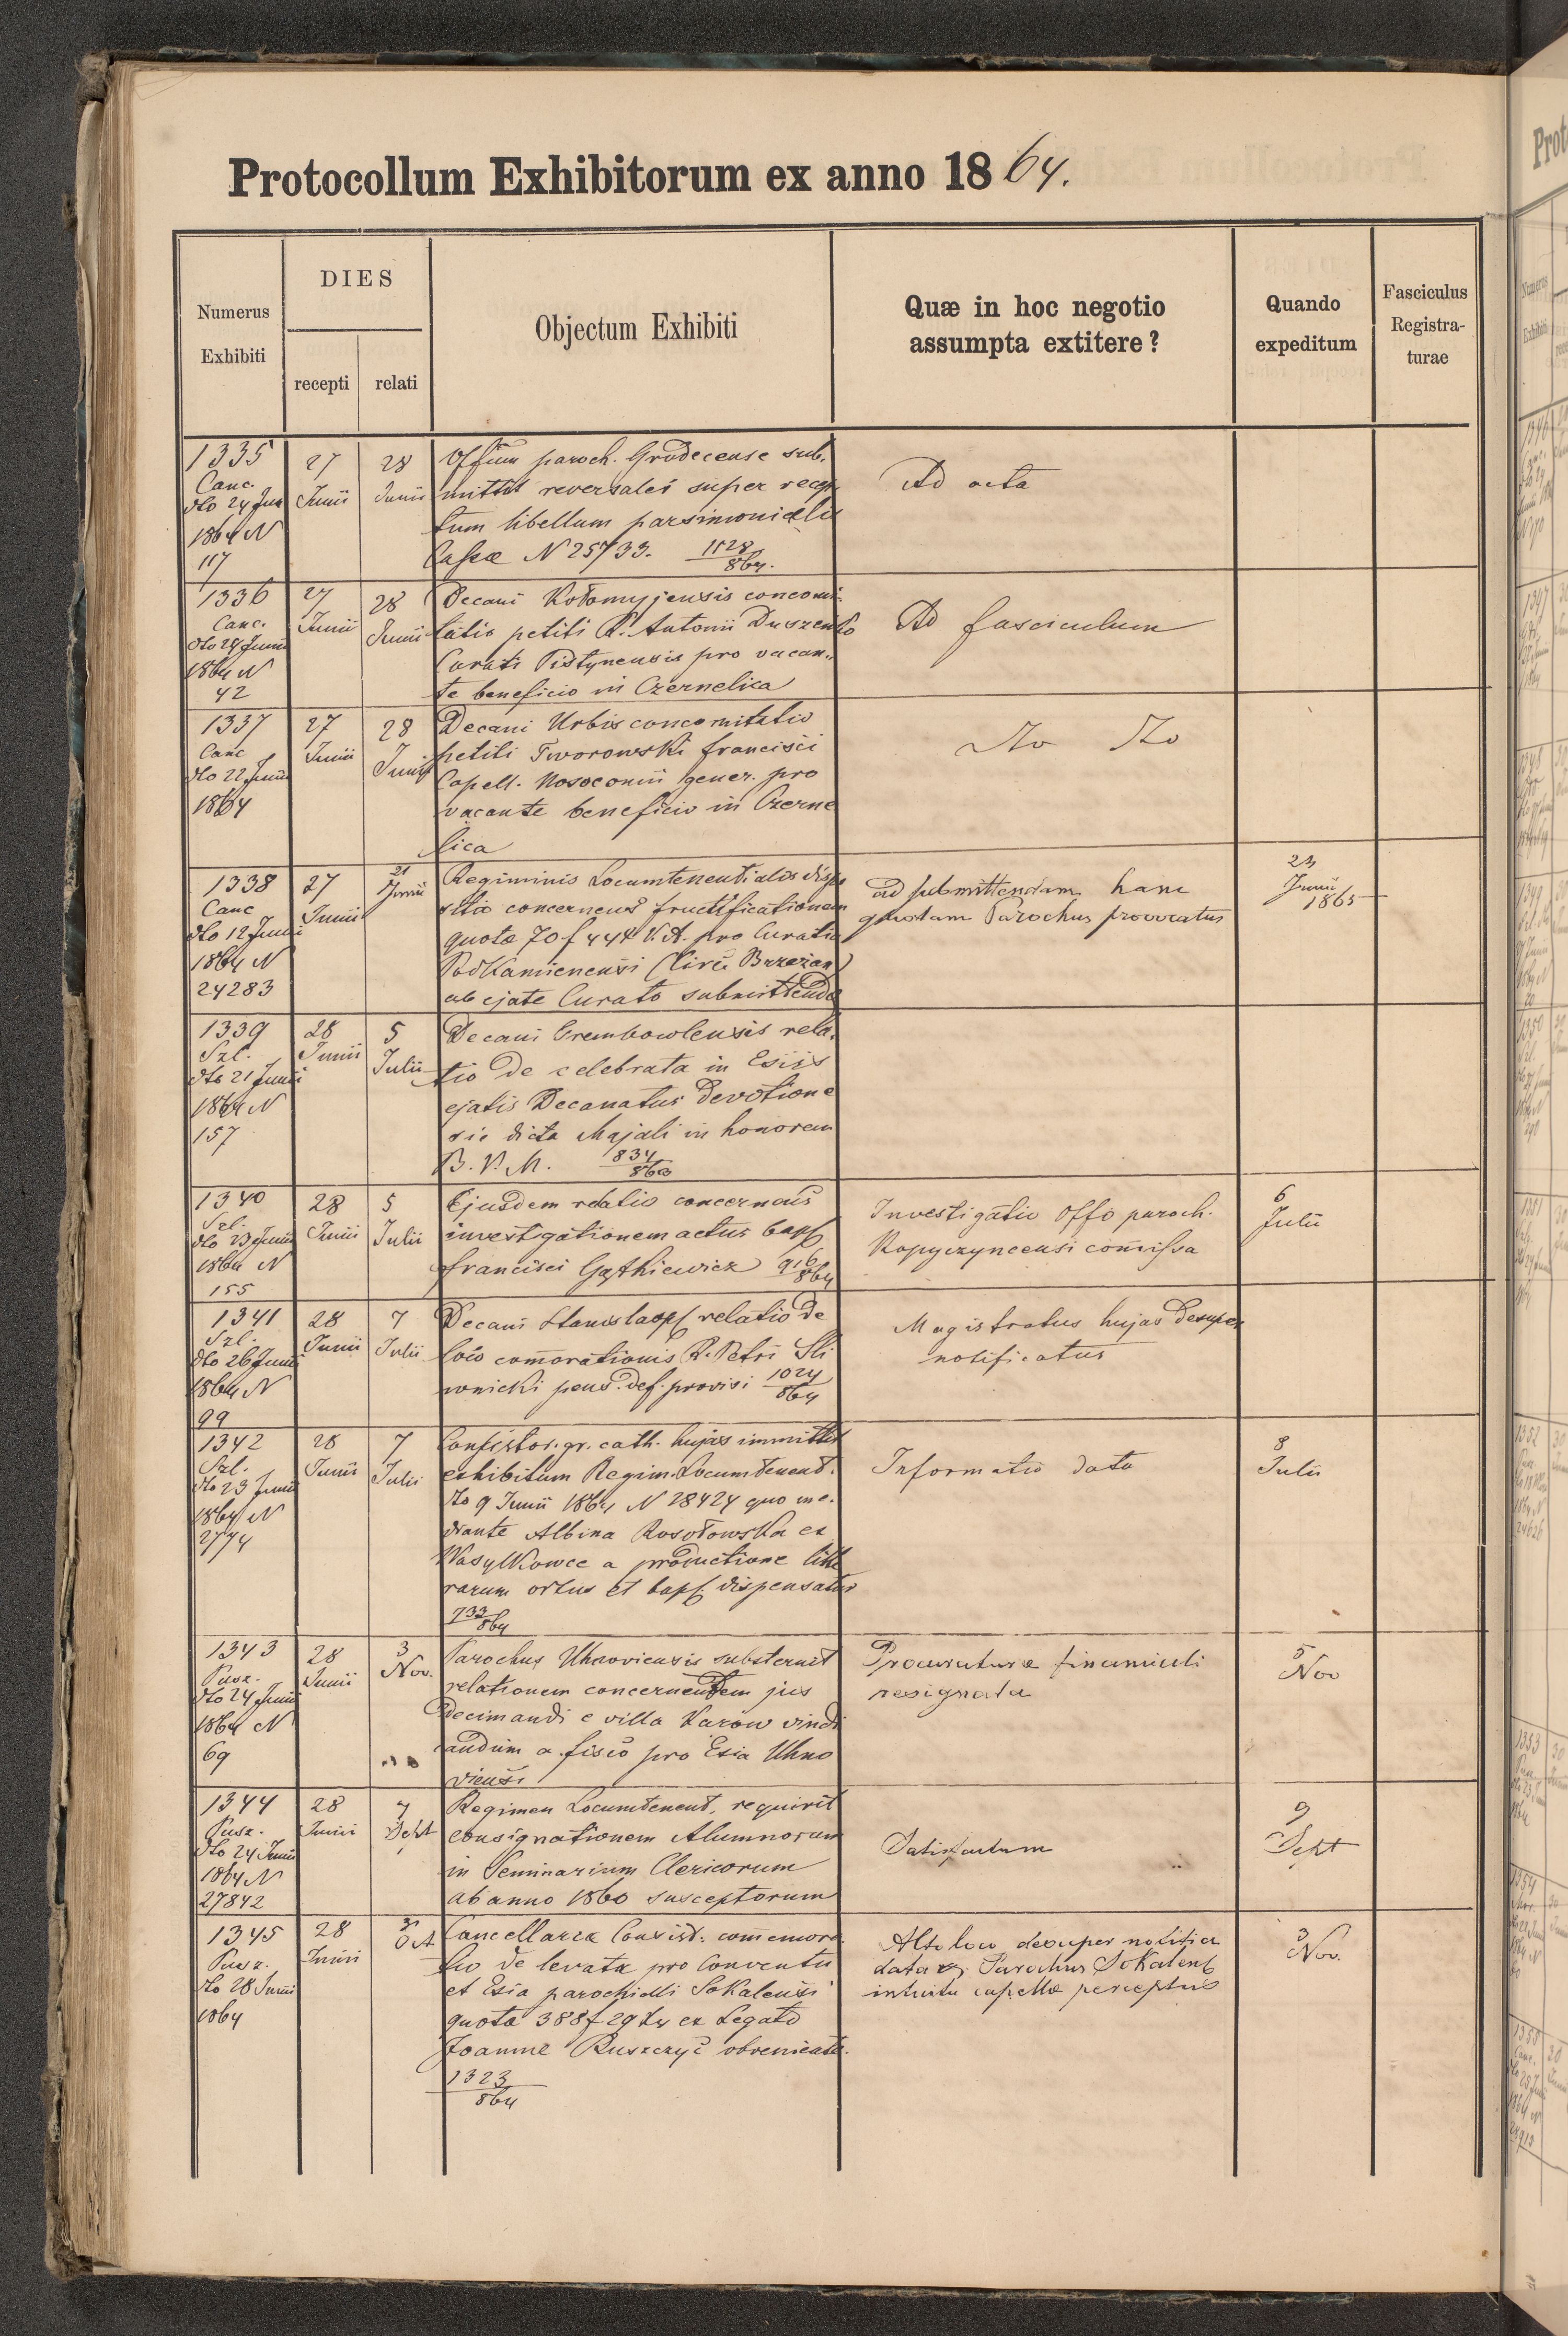 Protocollum Exhibitorum ex anno 1864.
Numerus Exhibiti
DIES
recepti
relati
Objectum Exhibiti
Quæ in hoc negotio
assumpta extitere?
Quando
expeditum
Fasciculus
Registra-
turae
1335
Canc.
dto 24 Jun
1864 N
117
27
Junii
28
Junii
Offium paroch. Grodecense sub,
mittit reversales super recep
tum libellum parsimonialis
Cassæ N 25733. 1128/864.
Ad acta
1336
Canc.
dto 24 Junii
1864 N
42
27
Junii
28
Junii
Decani Kołomyjensis concomi
tatio petiti R. Antonii Duszenko
Curati Pistynensis pro vacan,,
te beneficio in Czernelica
Ad fasciculum
1337
Canc
dto 22 Junii
1864
27
Junii
28
Junii
Decani Urbis concomitatio
petiti Tworowski francisci
Capell. Nosocomii gener. pro
vacante beneficio in Czerne
lica
Dto Dto
1338
Canc
dto 12 Junii
1864 N
24283
27
Junii
21
Junii
Regiminis Locumtenentialis dispo
sitio concernens fructificationem
quotæ 70 f 44 x V.A. pro Curatia
Podkamienensi (Circ Brzezan)
ab ejate Curato submittendæ
ad submittendam hanc
quotam Parochus provocatus
23
Junii
1865
1339
Szl.
dto 21 Junii
1864 N
157
28
Junii
5
Julii
Decani Trembowlensis rela,
tio de celebrata in Esiis
ejatis Decanatus Devotione
sic dicta Majali in honorem
B. V. M. 834/863
1340
Szl.
dto 23 Junii
1864 N
155
28
Junii
5
Julii
Ejusdem relatio concernens
investigationem actus bapt
francisci 916/864
Investigatio Offo paroch.
Kopyczyncensi comissa
6
Julii
1341
Szl.
dto 26 Junii
1864 N
99
28
Junii
7
Julii
Decani Stanislaop relatio de
loco comorationis R. Petri Sli
wnicki pens. def. provisi 1024/864
Magistratus hujas desuper
notificatus
1342
Szl.
dto 23 Junii
1864 N
2774
28
Junii
7
Julii
Consistor. gr. cath. hujas immittit
exhibitum Regim. Locumtenent.
dto 9 Junii 1864 N 28424 quo me.
diante Albina Rosołowska ex
Wasylkowce a productione litte
rarum ortus et bapt. dispensatur
733/864
Informatio data
8
Julii
1343
Pusz.
dto 24 Junii
1864 N
69
28
Junii
3
Nov.
Parochus Uhnoviensis substernit
relationem concernentem jus
decimandi e villa Karów vindi
candum a fisco pro Esia Uhno
viensi
Procuraturæ
resignata
5
Nov
1344
Pusz.
dto 24 Junii
1864 N
27842
28
Junii
7
Sept
Regimen Locumtenent, requirit
consignationem Alumnorum
in Seminarium Clericorum
ab anno 1860 susceptorum
Satisfactum
9
Sept
1345
Pusz.
dto 28 Junii
1864
28
Junii
3
Oct
Cancellariæ Consist. commemora
tio de levata pro Conventu
et Esia parochiali Sokalensi
quota 388 f 29 x ex Legato
Joannæ Ruszczyc obveniente.
1323/864
Alto loco desuper notitia
data et Parochus Sokalens
intuitu capellæ perceptus
3
Nov.